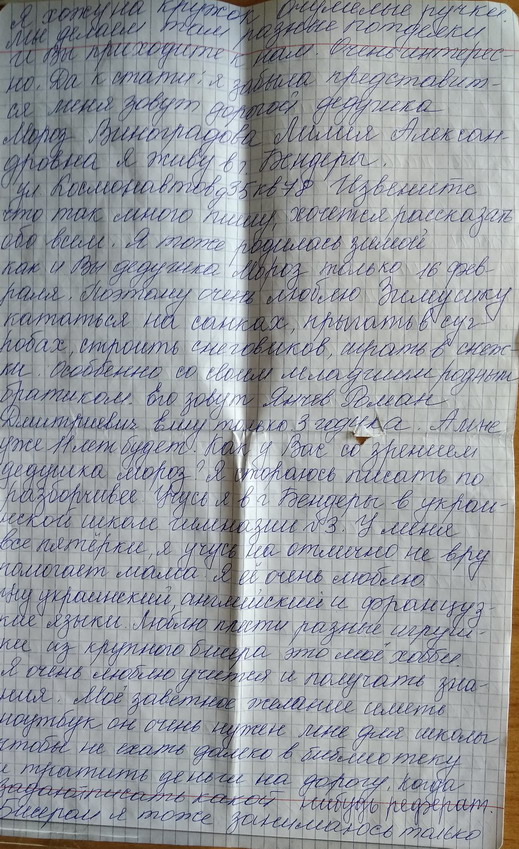 Я хожу на кружок очумелые ручки
Мы делаем там разные поделки
и Вы приходите к нам. Очень интерес-
но. Да к стати: я забыла представит-
ся меня зовут дорогой дедушка
Мороз Виноградова Лилия Алексан-
дровна Я живу в г. Бендеры.
ул Космонавтов д35 кв 78 Извените
что так много пишу, хочется рассказать
обо всем. Я тоже родилась зимой
как и Вы дедушка Мороз только 16 фев-
раля. Поэтому очень люблю Зимушку
кататься на санках, прыгать в суг
робах, строить снеговиков, играть в снеж
ки. Особенно со своим младшим родным
братиком. Его зовут Янчев Роман
Дмитриевич Ему только 3 годика. А мне
уже 11 лет будет. Как у Вас со зрением
дедушка Мороз? Я стораюсь писать по
разборчивее Учусь я в г. Бендеры в украи-
нской школе гимназии №3. У меня
все пятёрки, я учусь на отлично не вру
помогает мама. Я её очень люблю
чу украинский, английский и француз-
кие языки. Люблю плести разные игруш-
ки из крупного бисера это моё хобби.
Я очень люблю учится и получать зна-
ния. Моё заветное желание иметь
ноутбук он очень нужен мне для школы
чтобы не ехать далеко в библиотеку
и тратить деньги на дорогу, когда
писать какой пишуь реферат.
Бисером я тоже занимаюсь только